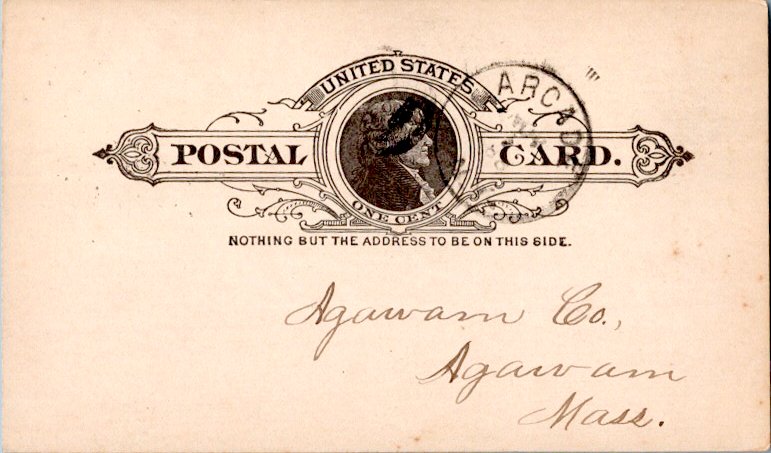 UNITED STATES
POSTAL CARD.
ONE CENT
NOTHING BUT THE ADDRESS TO BE ON THIS SIDE.
Agawam Co.,
Agawam
Mass.